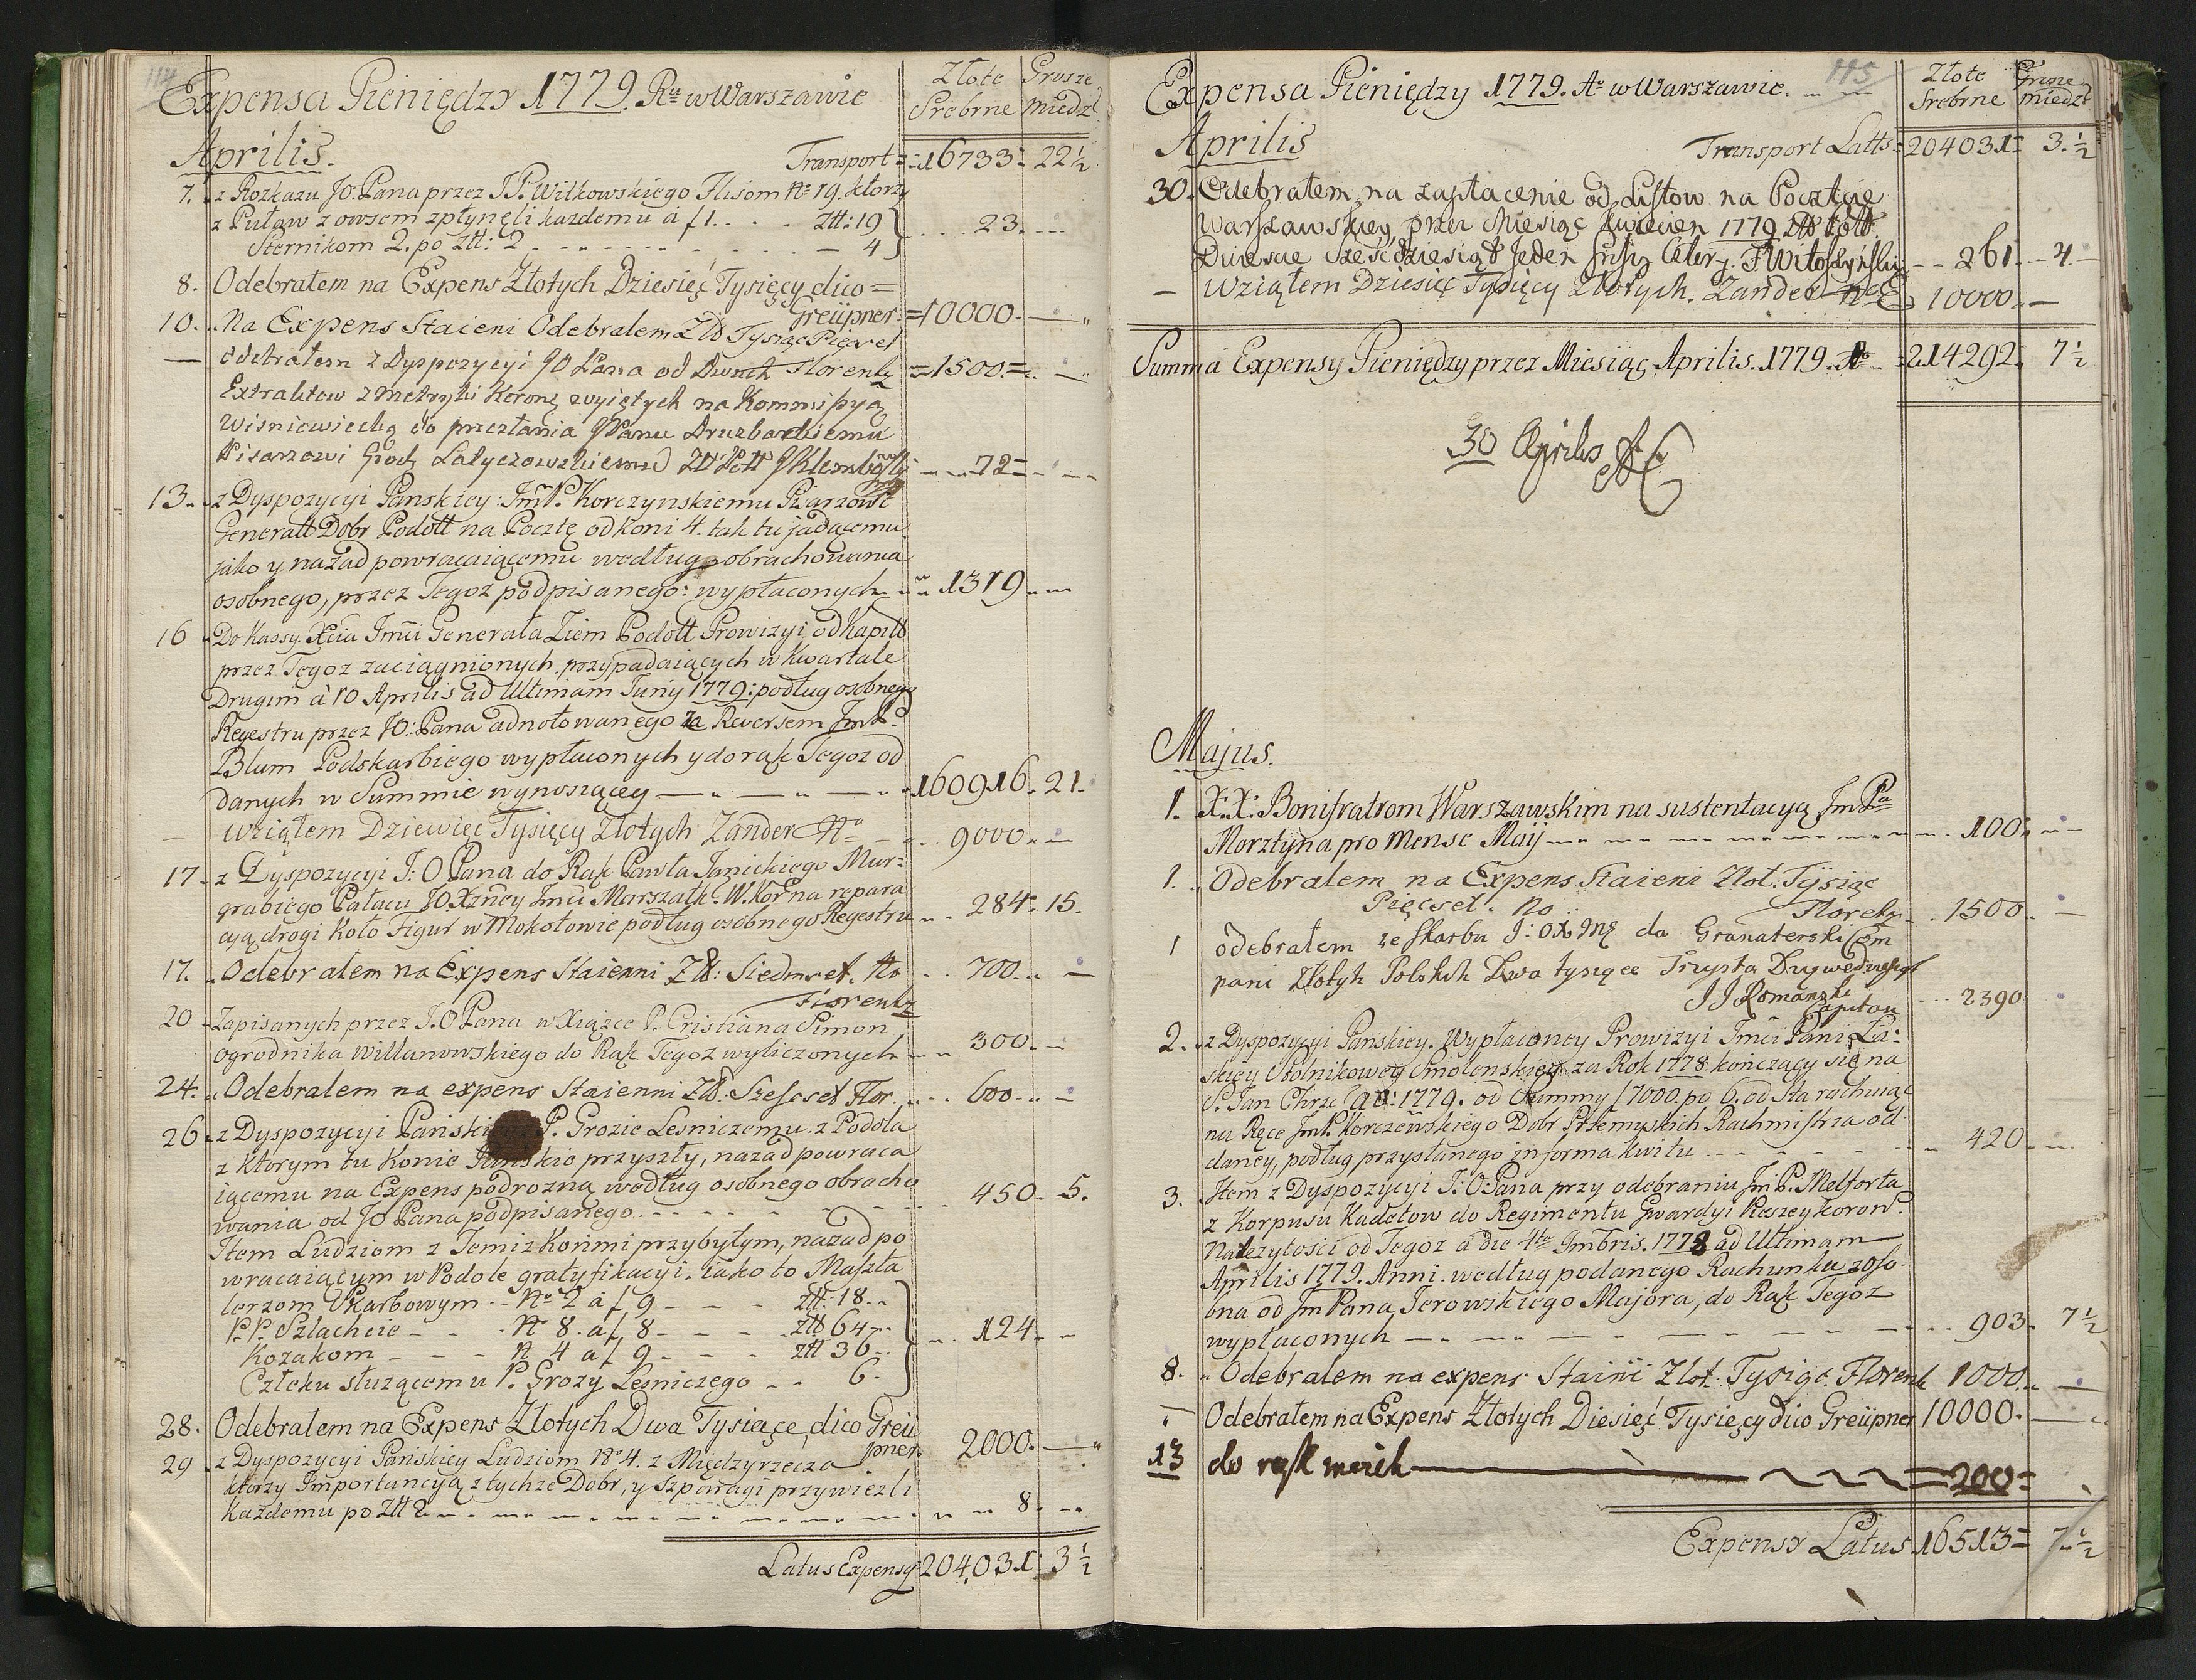 114
Expensa Pieniędzy 1779. Ru w Warszawie
Złote Srebrne
Grosze miedz.
Aprilis.
Transport = 16733 = 22 ½
7. z Rozkazu JO. Pana przez JP. Witkowskiego Flisom No 19. ktorzy
z Puław z owsem zpłyneli kazdemu a f 1. . . . Ztt: 19
Sternikom 2. po ztt: 2 . . . 4 } . . . 23. . . .
8. Odebrałem na Expens Złotych Dziesięć Tysięcy dico =
Greüpner. = 10000. —
10. Na Expens Staieni Odebrałem Ztt Tysiąc Pięcset
Florentz = 1500. = —
— Odebrałem z Dyspozycyi JO Pana od Dwuch
Extraktow z Metryki Koronę wyiętych na Kommissyą
Wisniewiecką do przesłania JPanu Druzbackiemu
Pisarzowi Grodz Latyczowskiemu Ztt Pott 72 =
13. z Dyspozycyi Panskiey: JmP. Korczynskiemu Pisarzowi
Generatt Dobr Podott na Pocztę od koni 4. tak tu jadącemu
jako y nazad powracaiącemu według obrachowania
osobnego, przez Tegoz podpisanego: wypłaconych 1319 . . .
16 Do Kassy Xcia Jmci Generała Ziem Podott Prowizyi od Kapitt
przez Tegoz zaciągnionych przypadaiących w Kwartale
Drugim à 10 Aprilis ad Ultimam Junij 1779: podług osobnego
Regestru przez JO: Pana adnotowanego za Reversem JmP.
Blum Podskarbiego wypłaconych y do rąk Tegoz od
danych w Summie wynoszącey — 160916. 21.
— Wziąłem Dziewięć Tysięcy Złotych Zander 9000. —
17. z Dyspozycyi J: O Pana do Rąk Pawła Janickiego Mur=
grabiego Pałacu JO. Xzney Jmci Marszałk: W. Kor na repara
cyą drogi koło Figur w Mokotowie podług osobnego Regestru 284. 15.
17. Odebrałem na Expens Staienni Ztt: Siedmset. No 700. —
Florentz
20 Zapisanych przez J. O Pana w Xiązce P. Cristiana Simon
ogrodnika Willanowskiego do Rąk Tegoz wyliczonych 300. —
24. Odebrałem na expens Staienni Ztt: Szescset Flor. 600. —
26 z Dyspozycyi Panski P. Grozie Lesniczemu z Podola
z ktorym tu Konie Panskie przyszły, nazad powraca
iącemu na Expens podrozną według osobnego obracho
wania od JO Pana podpisanego 450. 5.
Item Ludziom z Temiz Końmi przybyłym, nazad po
wracaiącym w Podole gratyfikacyi. iako to Maszta
lerzom Skarbowym No 2 à f 9 ztt: 18.
P.P. Szlachcie No 8. à f 8 ztt 64
Kozakom No 4 à f 9 ztt 36
Człeku słuzącemu P. Grozy Lesniczego 6. } 124.
28. Odebrałem na Expens Złotych Dwa Tysiące, dico Greü
pner. 2000. —
29 z Dyspozycyi Pańskiey Ludziom No 4. z Międzyrzecza
ktorzy Importancyą z tychze Dobr, y Szparagi przywiezli
kazdemu po Ztt 2 8.
Latus Expensy 204031. 3 ½
115
Expensa Pieniędzy 1779. Ao w Warszawie.
Złote Srebrne
Grosze miedz
Aprilis
Transport Latts = 204031 = 3. ½
30. Odebrałem na zapłacenie od Listow na Poczcie
Warszawskiey przez Miesiąc Kwiecien 1779 Ztt Pott.
Dwiescie Szescdziesiąt Jeden 261. 4 —
— Wziąłem Dziesięć Tysięcy Złotych. Zander 10000. —
Summa Expensy Pieniędzy przez Miesiąc Aprilis. 1779. Ao = 214292. 7 ½
30 Aprilis
Majus.
1. X: X: Bonifratrom Warszawskim na sustentacyą Jm Pa
Morztyna pro Mense Maij 100.
1. Odebrałem na Expens Staieni Złot: Tysiąc
Pięcset. No Florentz 1500. —
1 Odebrałem ze Skarbu J: OX Jmę da Granaterski Com
pani Złotyh Polskih Dwa tysięce Trzysta
JJ Romanski Capitan 2390
2. z Dyspozycyi Panskiey. Wypłaconey Prowizyi Jmci Pani Ła=
skiey Stolnikowey Smolenskiey za Rok 1778. kończący się na
S. Jan Chrzc: Ao: 1779. od Summy f 7000. po 6. od Sta rachuiąc
na Ręce JmP. Korczewskiego Dobr Przemyskich Rachmistrza od
daney, podług przysłanego in forma kwitu 420.
3. Item z Dyspozycyi J: O Pana przy odebraniu JmP. Melforta
z Korpusu Kadetow do Regimentu Gwardyi Pieszey koron.
Nalezytości od Tegoz a die 4ta Jmbris. 1778 ad Ultimam
Aprilis 1779. Anni. według podanego Rachunku zoso
bna od Jm Pana Jerowskiego Majora, do Rąk Tegoz
wypłaconych 903. 7 ½
8. Odebrałem na expens Staini Złot. Tysiąc. Florentz 1000. —
— Odebrałem na Expens Złotych Diesięć Tysięcy dico Greüpner 10000. —
13 do rąk moich = 200 =
Expensy Latus 16513 = 7 ½